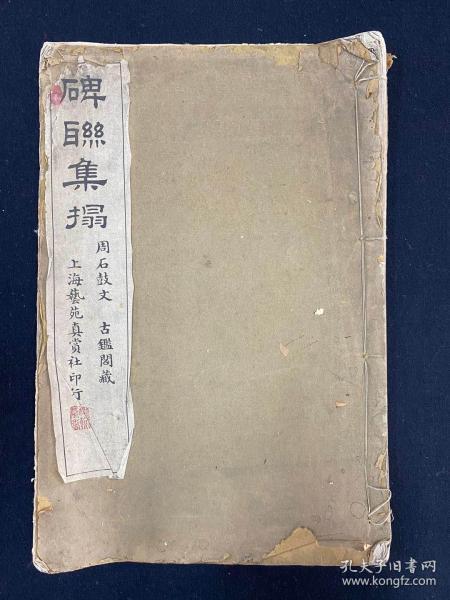 碑聯集搨
周石鼓文 古鑑閣藏
上海藝苑真賞社印行
孔夫子旧书网
www.kongfz.com